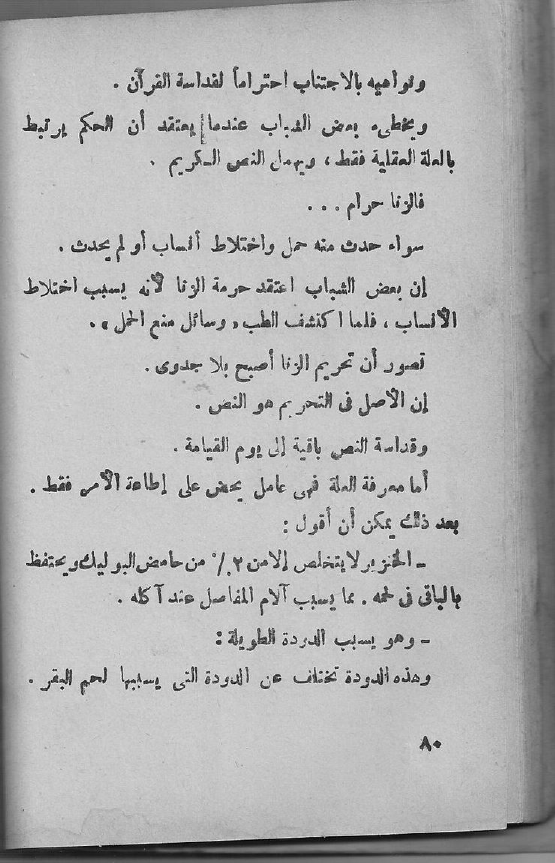 ونواهيه بالاجتناب احتراماً لقداسة القرآن .
ويخطىء بعض الشباب عندما يعتقد أن الحكم يرتبط
بالعلة العقلية فقط ، ويهمل النص الكريم .
فالزنا حرام . . .
سواء حدث منه حمل واختلاط أنساب أو لم يحدث .
إن بعض الشباب اعتقد حرمة الزنا لأنه يسبب اختلاط
الأنساب ، فلما اكتشف الطب « وسائل منع الحمل » .
تصور أن تحريم الزنا أصبح بلا جدوى .
إن الأصل فى التحريم هو النص .
وقداسة النص باقية إلى يوم القيامة .
أما معرفة العلة فهى عامل يحض على إطاعة الأمر فقط .
بعد ذلك يمكن أن أقول :
ـ الخنزير لا يتخلص إلا من ٢٪ من حامض البوليك ويحتفظ
بالباقى فى لحمه . مما يسبب آلام المفاصل عند آكله .
ـ وهو يسبب الدودة الطويلة :
وهذه الدودة تختلف عن الدودة التى يسببها لحم البقر .
٨٠